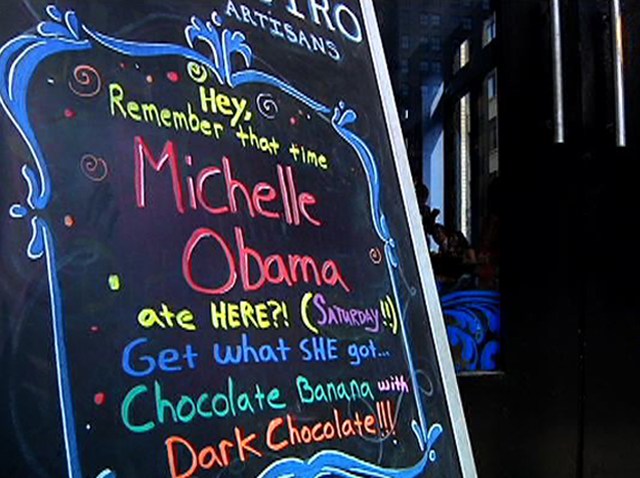 ARTISANS
Hey,
Remember that time
Michelle
Obama
ate HERE?! (SATURDAY!!)
Get what SHE got...
Chocolate Banana with
Dark Chocolate!!!